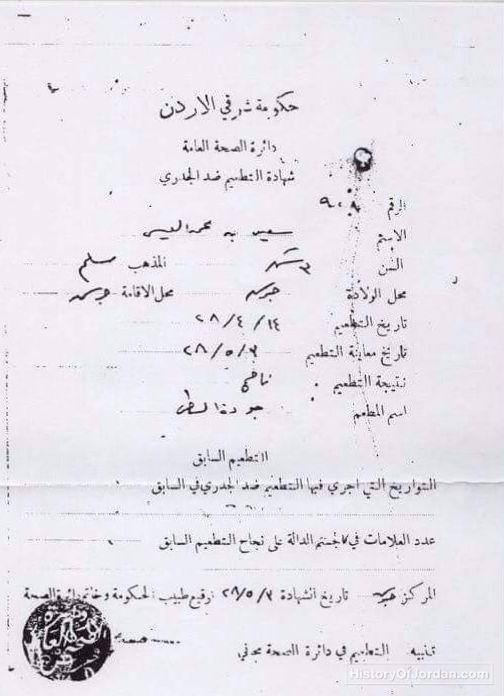 حكومة شرقي الاردن
دائرة الصحة العامة
شهادة التطعيم ضد الجدري
الرقم
الاسم سعيد بن محمد العيسى
السن ٣ شهر المذهب مسلم
محل الولادة جرش محل الاقامة جرش
تاريخ التطعيم ١٤ / ٤ / ٢٨
تاريخ معاينة التطعيم ٣ / ٥ / ٢٨
نتيجة التطعيم ناجح
اسم المطعم جودة
التطعيم السابق
التواريخ التي اجري فيها التطعيم ضد الجدري في السابق
عدد العلامات في الجسم الدالة على نجاح التطعيم السابق
المركز جرش تاريخ الشهادة ٣ / ٥ / ٢٨ توقيع طبيب الحكومة وختم دائرة الصحة
تنبيه التطعيم في دائرة الصحة مجاني
HistoryOfJordan.com